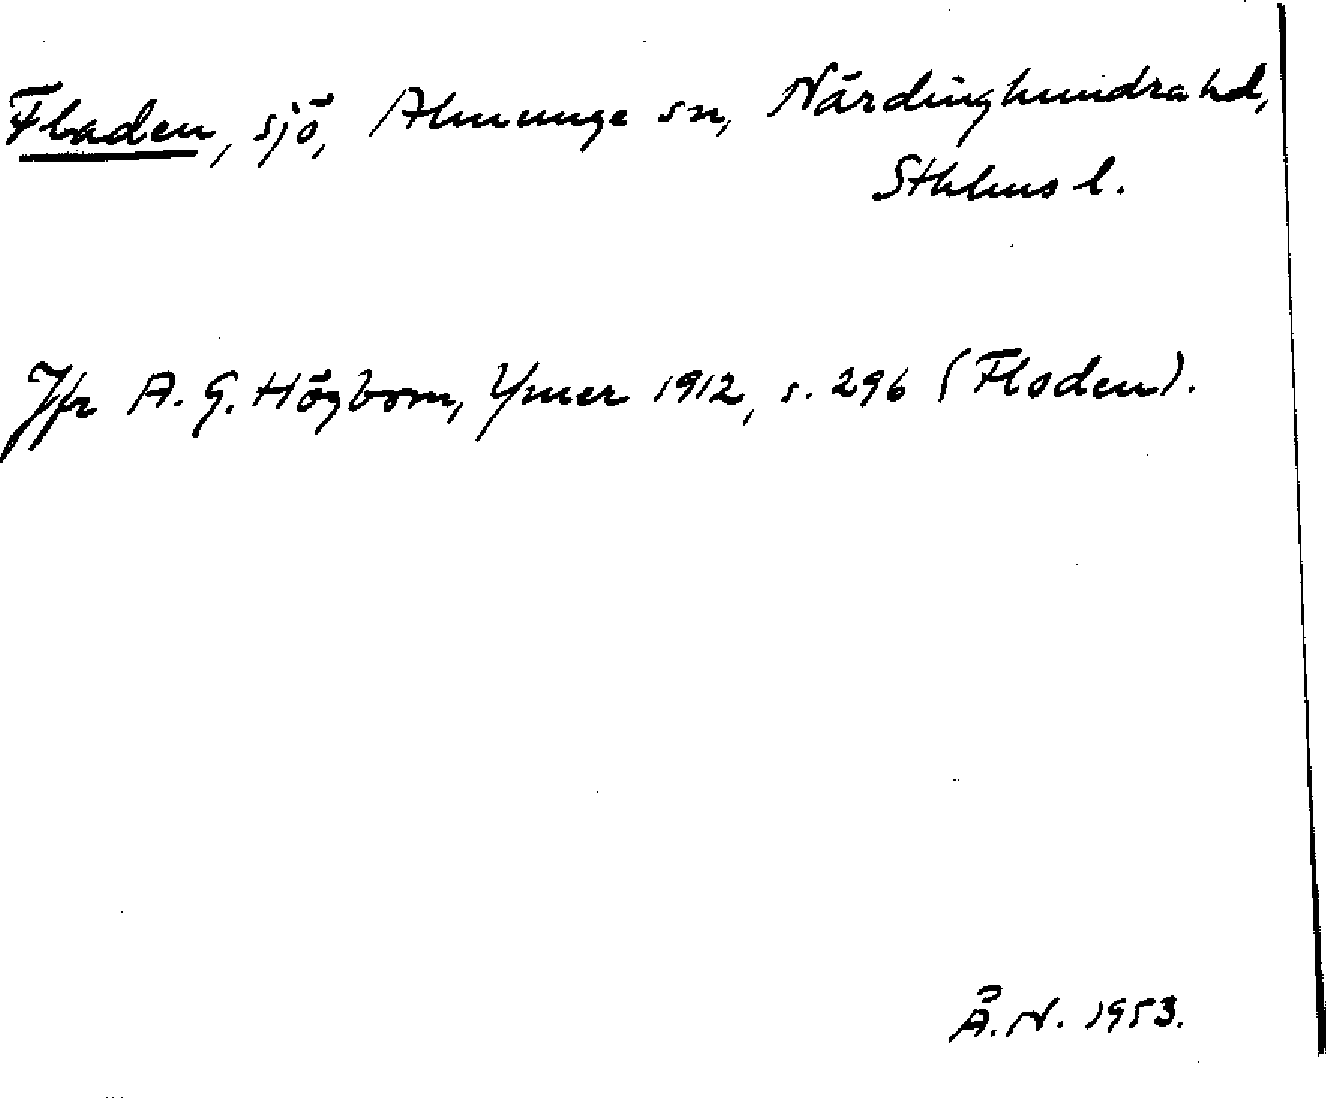 Fladen, sjö, Almunge sn, Närdinghundra hd,
Sthlms l.
Jfr A. G. Högbom, Ymer 1912, s. 296 (Floden).
Å. N. 1953.